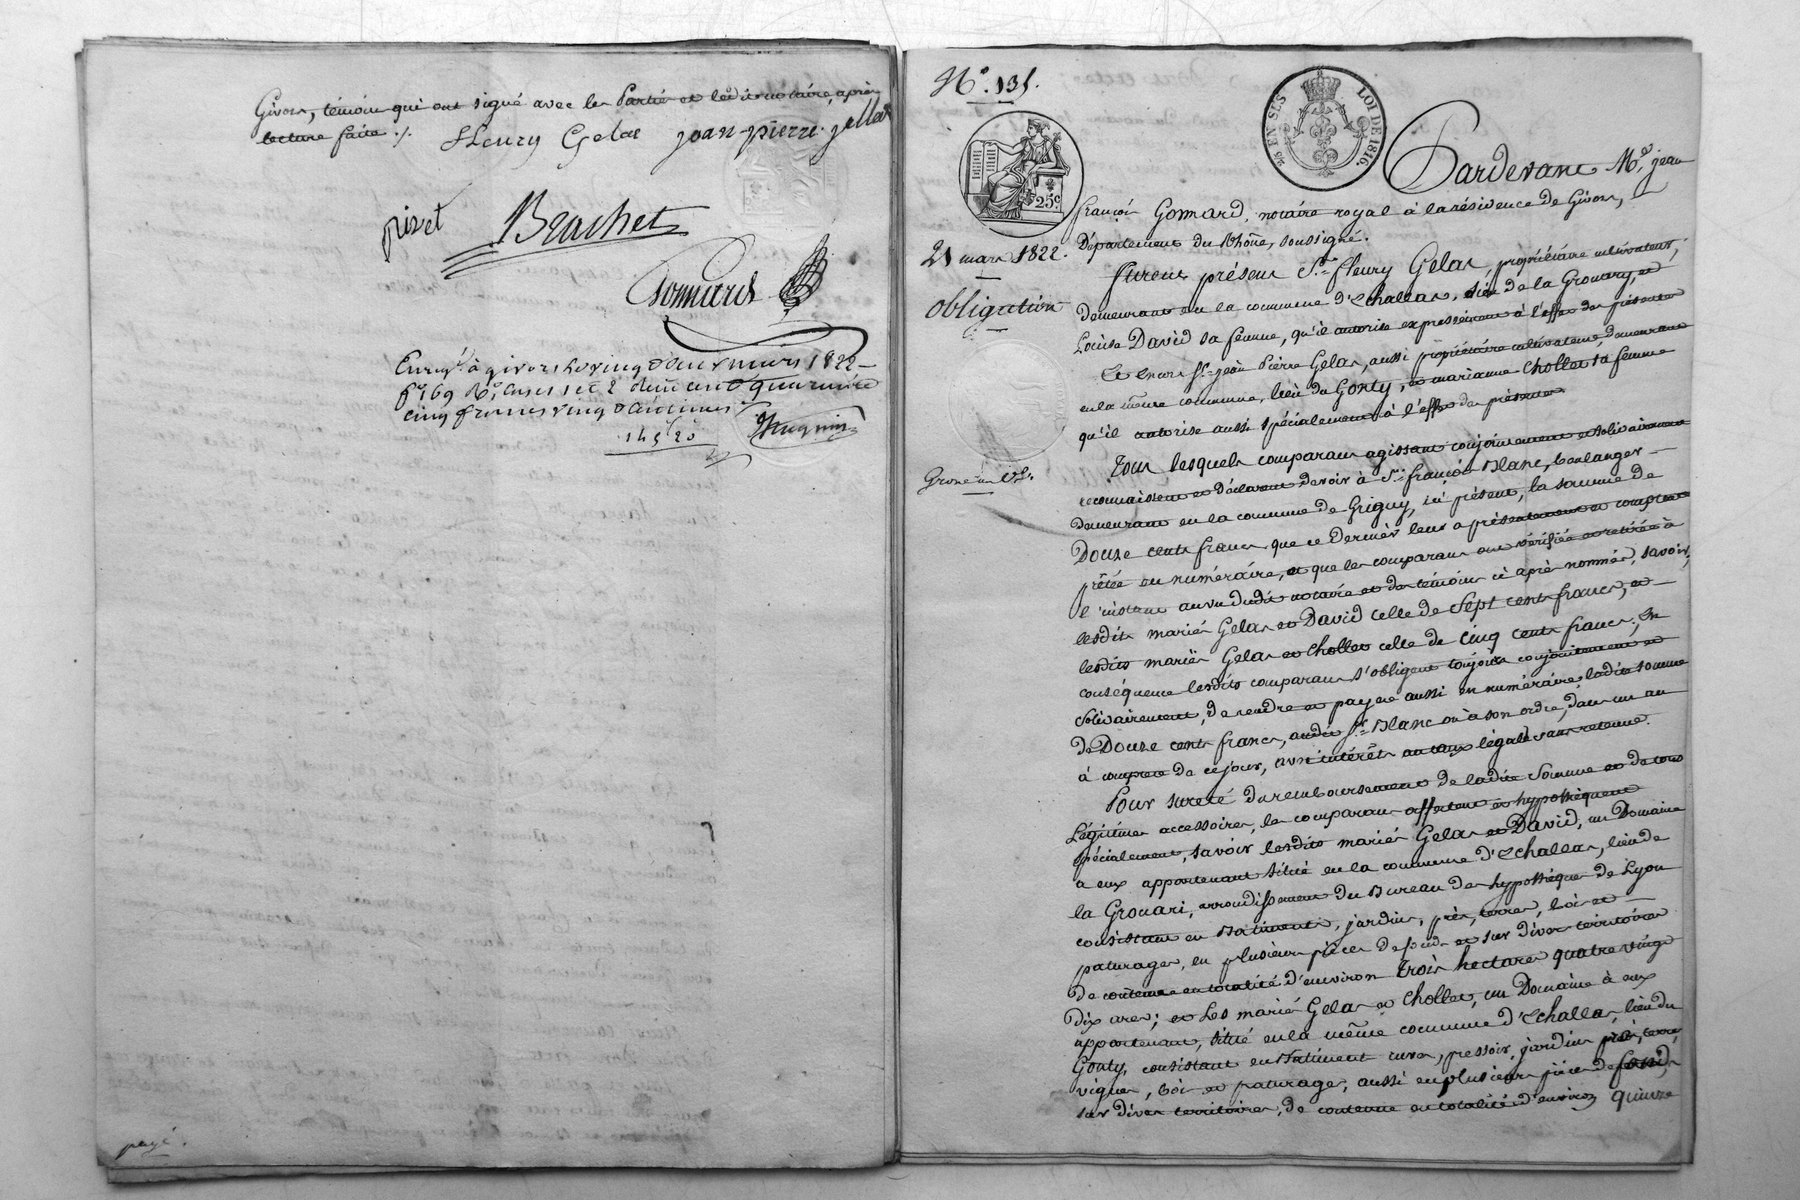 Givors, témoins qui ont signé avec les Parties et ledit notaire, après
lecture faite ./.
fleury Gelas jean-pierre gellas
pivet
Brachet
Gomard
Enreg.é à givors le vingt deux mars 1822
f.o 169 R.o cases 1 et 2
cinq francs vingt centimes
145 20
payé.
N.o 131.
25 EN SUS
LOI DE 1816.
25c
Pardevant M.e jean
françois Gomard, notaire royal à la résidence de Givors,
Département du Rhône, soussigné.
21 mars 1822.
furent présens S.r fleury Gelas, propriétaire cultivateur,
demeurant en la commune d'Echallas, lieu de la Grouary, et
obligation
Louise David sa femme, qu'il autorise expressément à l'effet des présentes
Et encore S.r jean Pierre Gelas, aussi propriétaire cultivateur, demeurant
en la même commune, lieu du Gonty, et marianne Chollet sa femme
qu'il autorise aussi spécialement à l'effet des présentes
Tous lesquels comparans agissant conjointement et solidairement
Grossé un Rle.
reconnaissent et déclarent devoir à S.r françois Blanc, boulanger
demeurant en la commune de Grigny, ici présent, la somme de
Douze cents francs que ce dernier leur a présentement et comptant
prêtée en numéraire, et que les comparans ont vérifiée et retirée à
l'instant au vu dudit notaire et des témoins ci après nommés, savoir,
lesdits mariés Gelas et David celle de Sept cents francs, et
lesdits mariés Gelas et Chollet celle de cinq cents francs; En
conséquence lesdits comparans s'obligent toujours conjointement et
solidairement, de rendre et payer aussi en numéraire ladite somme
de Douze cents francs, audit S.r Blanc ou à son ordre, dans un an
à compter de ce jour, avec intérêts au taux légal sans retenue.
Pour sureté du remboursement de ladite Somme et de tous
Légitimes accessoires, les comparans affectent et hypothèquent
spécialement, savoir lesdits mariés Gelas et David, un Domaine
à eux appartenant situé en la commune d'Echallas, lieu de
la Grouari, arrondissement du Bureau des hypothèques de Lyon
consistant en Batiments, jardins, prés, terres, bois et
paturages, en plusieurs pièces de fonds et sur divers territoires
de contenue en totalité d'environ trois hectares quatre vingt
dix ares; et Les mariés Gelas et Chollet, un Domaine à eux
appartenant, situé en la même commune d'Echallas, lieu du
Gonty, consistant en Batiment cuves, pressoir, jardins prés, terre,
vignes, bois et paturages, aussi en plusieurs pièces de fonds,
sur divers territoires, de contenue en totalité d'environ quinze